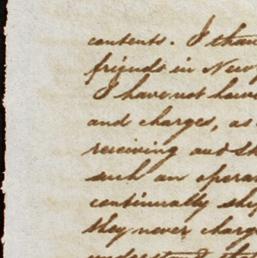 contents. I than
friends in New
I have not
and charges, as
receiving and th
such an opera
continually shi
they never charg
understand that